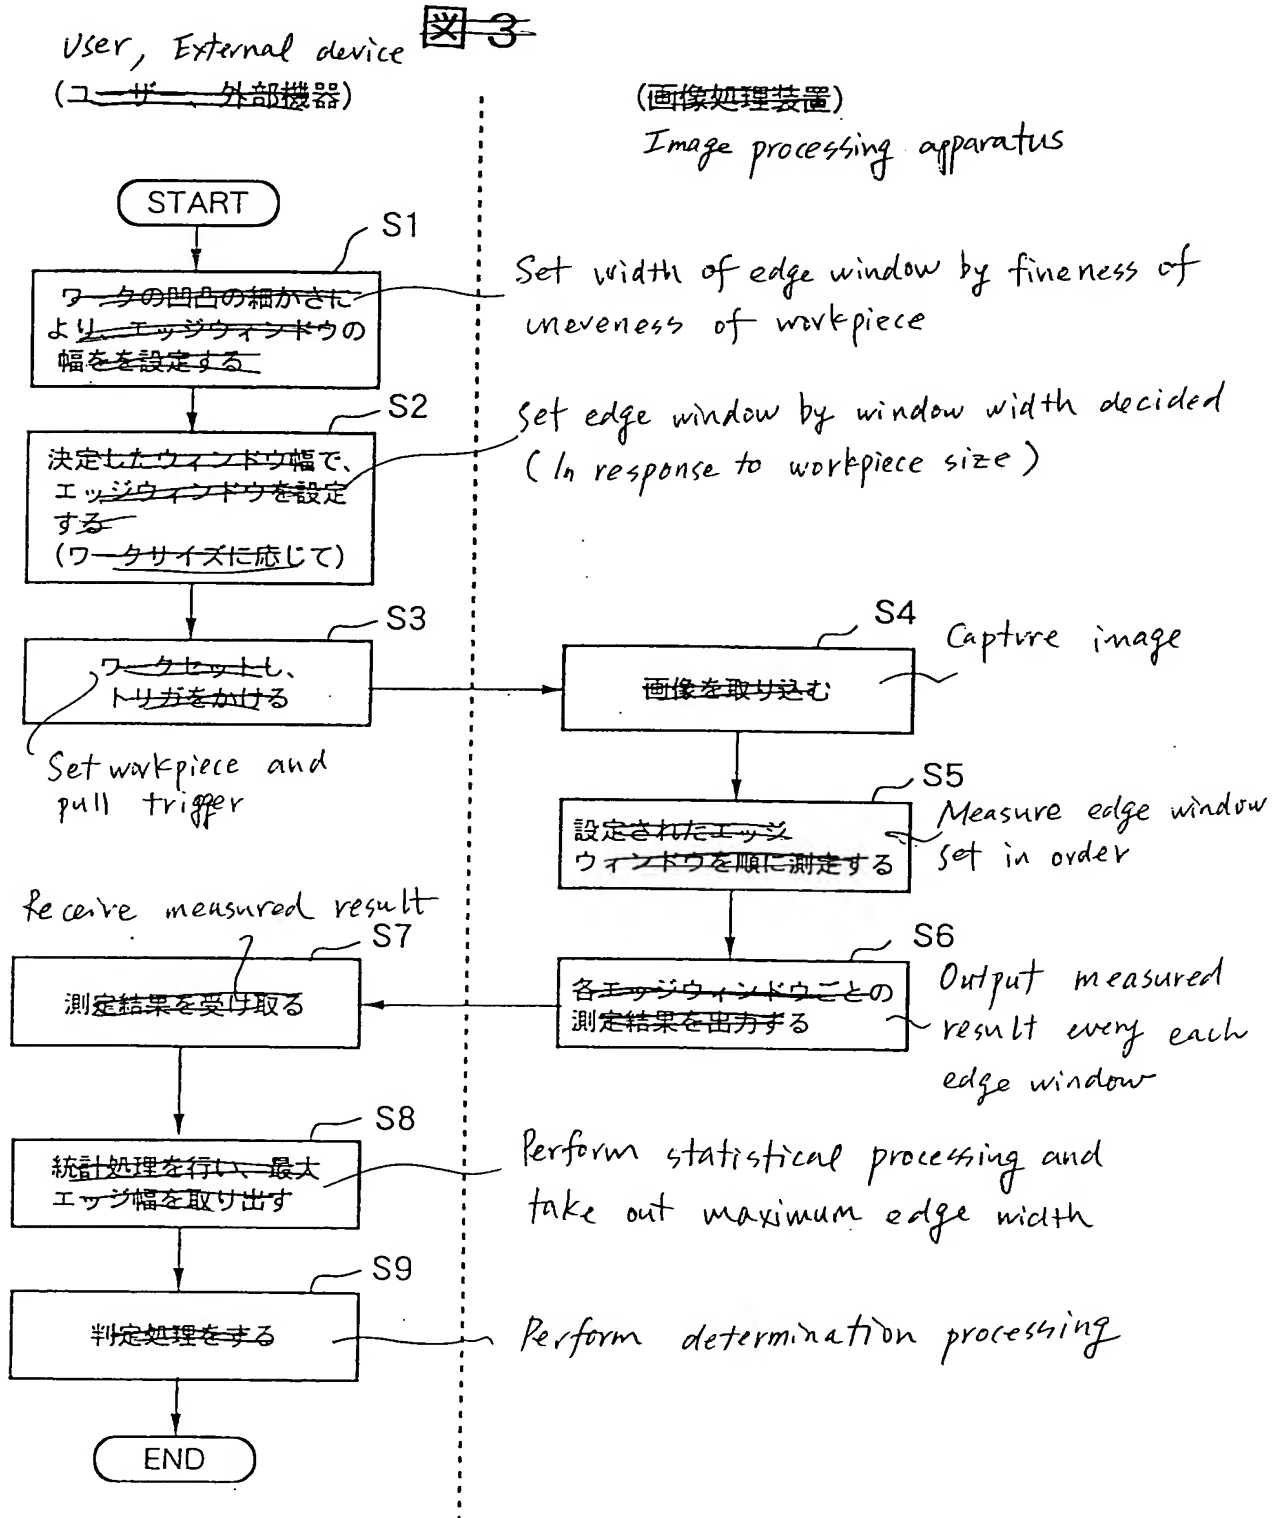 図 3
User, External device
(ユーザー、外部機器)
(画像処理装置)
Image processing apparatus
START
S1
ワークの凹凸の細かさに
より、エッジウィンドウの
幅をを設定する
Set width of edge window by fineness of
uneveness of workpiece
S2
決定したウィンドウ幅で、
エッジウィンドウを設定
する
(ワークサイズに応じて)
Set edge window by window width decided
(In response to workpiece size)
S3
ワークセットし、
トリガをかける
Set workpiece and
pull trigger
S4
画像を取り込む
Capture image
S5
設定されたエッジ
ウィンドウを順に測定する
Measure edge window
set in order
S6
各エッジウィンドウごとの
測定結果を出力する
Output measured
result every each
edge window
Receive measured result
S7
測定結果を受け取る
S8
統計処理を行い、最大
エッジ幅を取り出す
Perform statistical processing and
take out maximum edge width
S9
判定処理をする
Perform determination processing
END